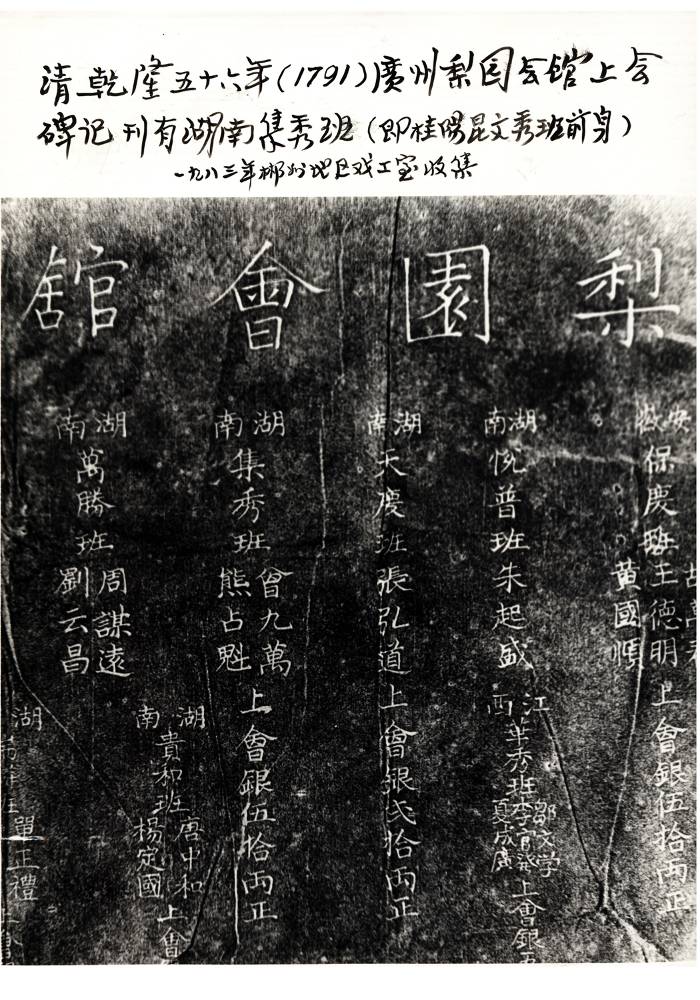 清乾隆五十六年(1791)廣州梨园会馆上会
碑记刊有湖南集秀班(即桂陽昆文秀班前身)
一九八三年郴州地区戏工室收集
梨園會館
安徽保慶班王德明黃國順上會銀伍拾両正
湖南悦普班朱起盛
江西華秀班鄒文学李官發夏成廣上會銀五
湖南天慶班張弘道上會銀弍拾両正
湖南集秀班曾九萬熊占魁上會銀伍拾両正
湖南貴和班唐中和楊定國上會
湖南萬勝班周謀遠劉云昌
湖班單正禮上會